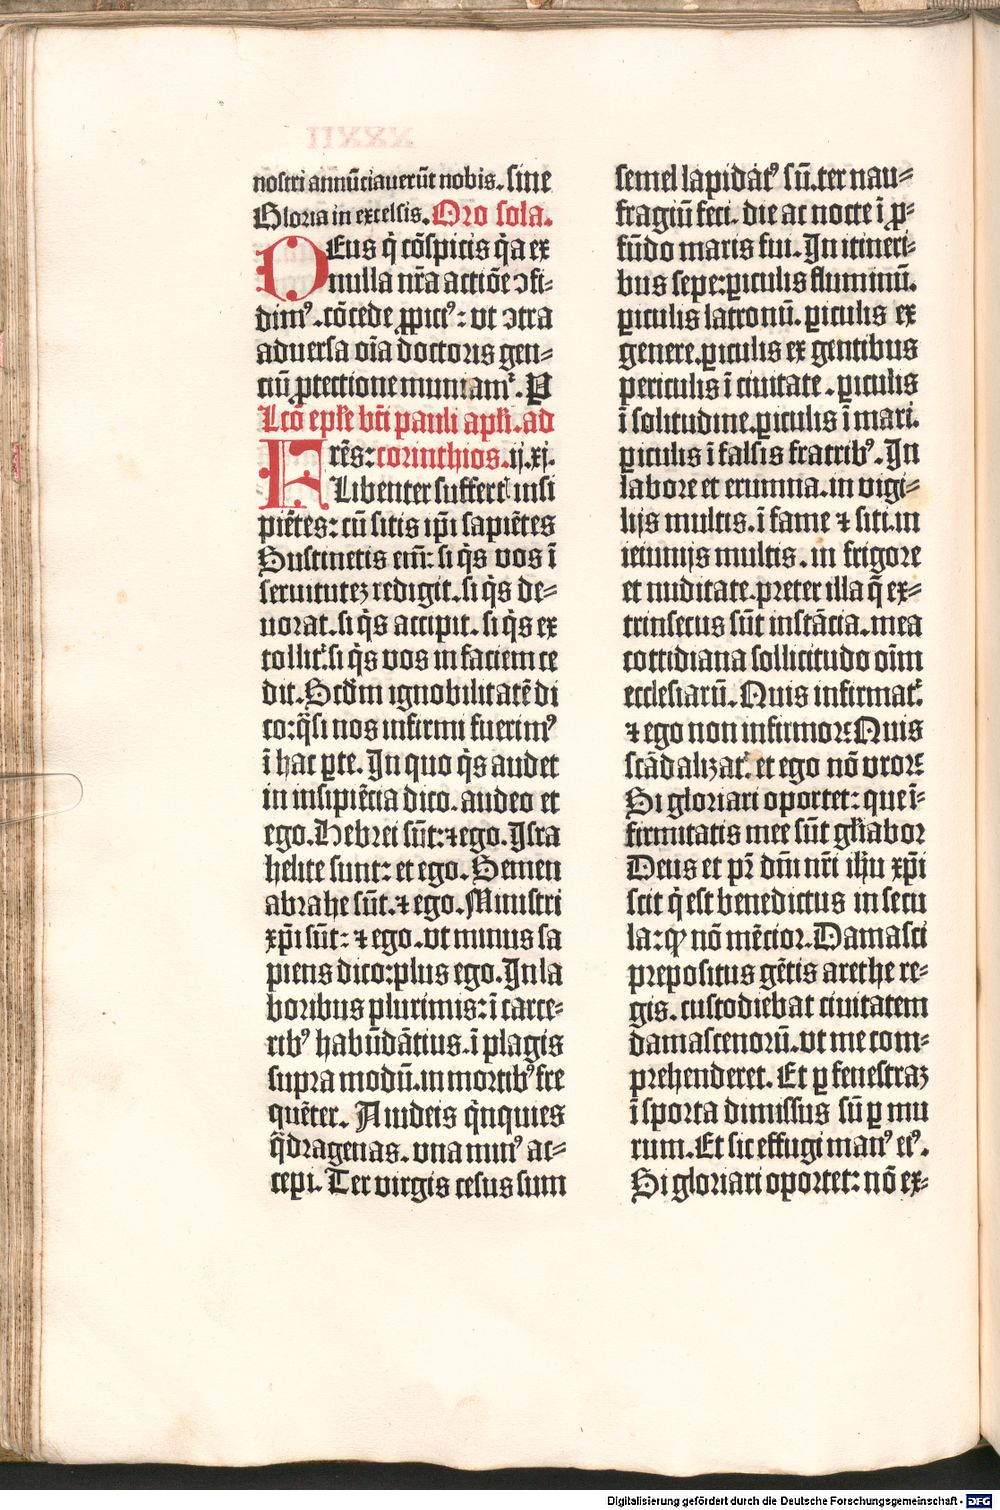 nostri annūciaverūt nobis. sine
Gloria in excelsis. Oro sola.
DEus q̇ cōspicis q̇a ex
nulla nr̄a actiōe ↄfi⸗
dimꝰ. cōcede ꝓpiciꝰ: vt ↄtra
adversa oīa doctoris gen⸗
ciū ꝓtectione muniamᷣ. P
Lcō epłe bt̄i pauli apłi. ad
FRēs: corinthios. ij. xj.
Libenter suffertꝭ insi
piētes: cū sitis ip̄i sapiētes
Sustinetis em̄: si q̇s vos ī
seruitutez redigit. si q̇s de⸗
uorat. si q̇s accipit. si q̇s ex
tollitᷣ. si q̇s vos in faciem ce
dit. Scd̄m ignobilitatē di
co: q̄si nos infirmi fuerimꝰ
ī hac ꝑte. In quo q̇s audet
in insipiēcia dico. audeo et
ego. Hebrei sūt: ⁊ ego. Isra
helite sunt: et ego. Semen
abrahe sūt. ⁊ ego. Ministri
xp̄i sūt: ⁊ ego. vt minus sa
piens dico: plus ego. In la
boribus plurimis: ī carce⸗
ribꝰ habūdātius. ī plagis
supra modū. in mortibꝰ fre
quēter. A iudeis q̇nquies
q̄dragenas. vna minꝰ ac⸗
cepi. Ter virgis cesus sum
semel lapidatꝰ sū. ter nau⸗
fragiū feci. die ac nocte ī ꝓ⸗
fūdo maris fui. In itineri⸗
bus sepe: ꝑiculis fluminū.
ꝑiculis latronū. ꝑiculis ex
genere. ꝑiculis ex gentibus
periculis ī ciuitate. ꝑiculis
ī solitudine. ꝑiculis ī mari.
ꝑiculis ī falsis fratribꝰ. In
labore et erumna. in vigi⸗
lijs multis. ī fame ⁊ siti. in
ieiunijs multis. in frigore
et nuditate. preter illa q̄ ex⸗
trinsecus sūt instācia. mea
cottidiana sollicitudo oīm
ecclesiarū. Quis infirmatᷣ.
⁊ ego non infirmor: Quis
scādalizatᷣ. et ego nō vror:
Si gloriari oportet: que ī⸗
firmitatis mee sūt głiabor
Deus et pr̄ dn̄i nr̄i ih̄u xp̄i
scit q̇ est benedictus in secu
la: ꝙ nō mēcior. Damasci
prepositus gētis arethe re⸗
gis. custodiebat ciuitatem
damascenorū. vt me com⸗
prehenderet. Et ꝑ fenestraz
ī sporta dimissus sū ꝑ mu
rum. Et sic effugi manꝰ eiꝰ.
Si gloriari oportet: nō ex⸗
Digitalisierung gefördert durch die Deutsche Forschungsgemeinschaft - DFG